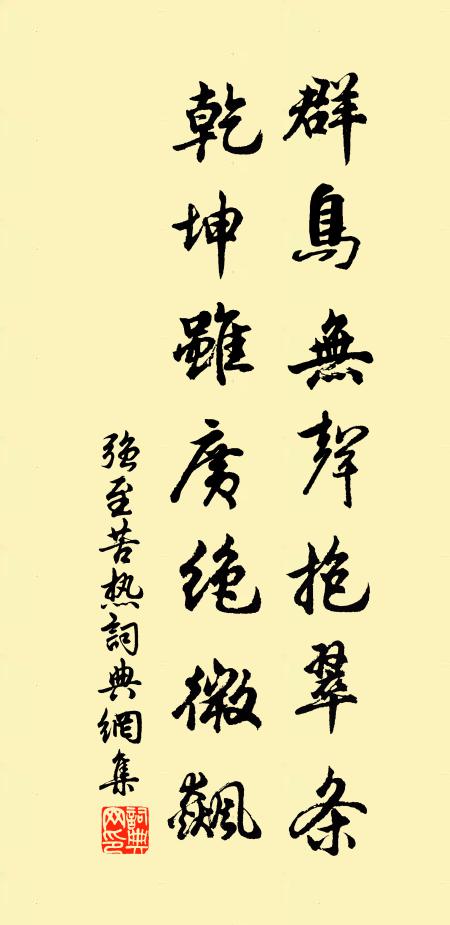 群鳥無聲抱翠条
乾坤雖廣絶微飙
強至苦热詞典網集
詞典網印